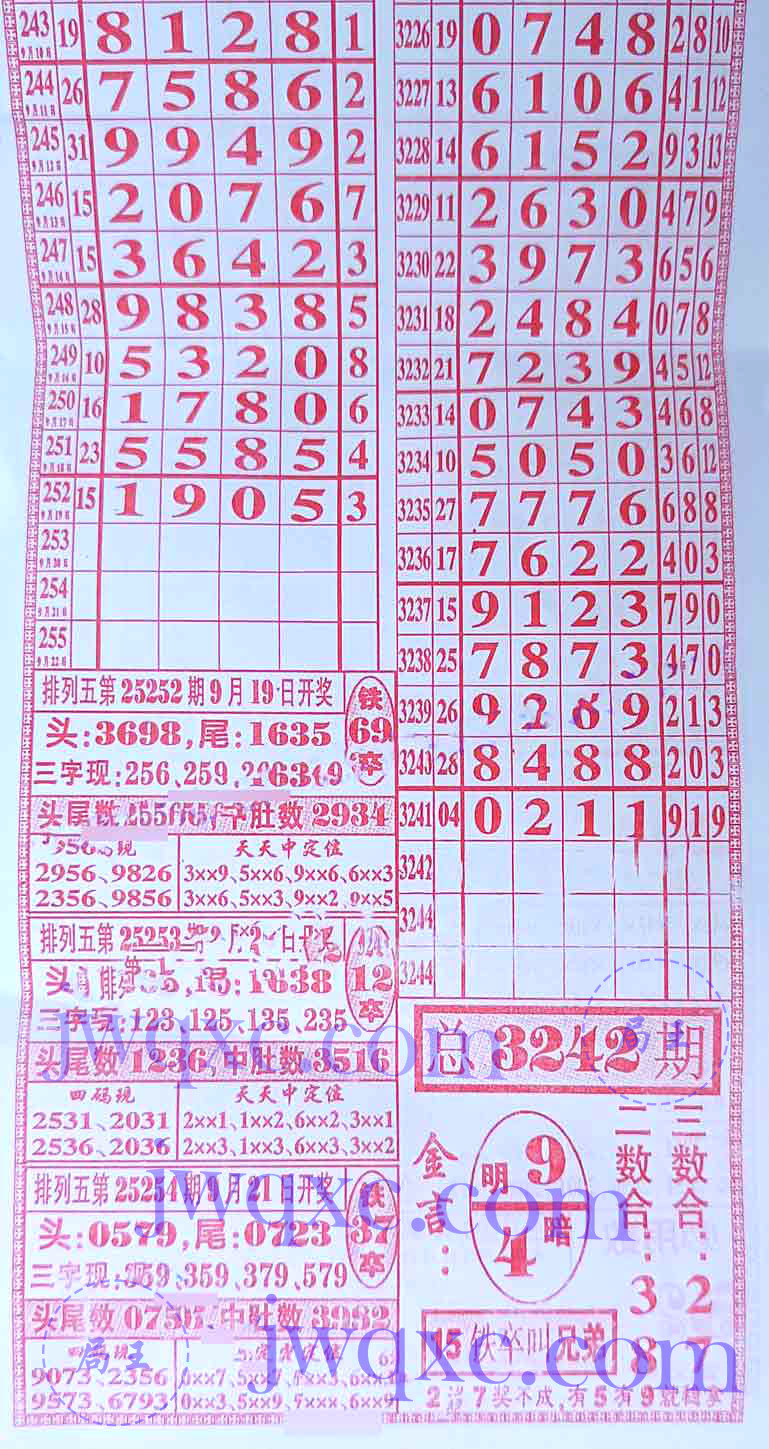 243 9月10日 19 8 1 2 8 1
244 9月11日 26 7 5 8 6 2
245 9月12日 31 9 9 4 9 2
246 9月13日 15 2 0 7 6 7
247 9月14日 15 3 6 4 2 3
248 9月15日 28 9 8 3 8 5
249 9月16日 10 5 3 2 0 8
250 9月17日 16 1 7 8 0 6
251 9月18日 23 5 5 8 5 4
252 9月19日 15 1 9 0 5 3
253 9月20日
254 9月21日
255 9月22日
排列五第25252期9月19日开奖
头:3698,尾:1635
铁
69
卒
三字现:256、259、
头尾数 中肚数2934
天天中定位
2956、9826
3××9、5××6、9××6、6××3
2356、9856
3××6、5××3、9××2、9××5
排列五第25253
12
卒
三字现:123、125、135、235
头尾数1236,中肚数3516
四码现
天天中定位
2531、2031
2××1、1××2、6××2、3××1
2536、2036
2××3、1××3、6××3、3××2
排列五第25254期9月21日开奖
头:0579,尾:0723
铁
37
卒
三字现:359、359、379、579
头尾数 中肚数3982
9073、2356
9573、6793
3226 19 0 7 4 8 2 8 10
3227 13 6 1 0 6 4 1 12
3228 14 6 1 5 2 9 3 13
3229 11 2 6 3 0 4 7 9
3230 22 3 9 7 3 6 5 6
3231 18 2 4 8 4 0 7 8
3232 21 7 2 3 9 4 5 12
3233 14 0 7 4 3 4 6 8
3234 10 5 0 5 0 3 6 12
3235 27 7 7 7 6 6 8 8
3236 17 7 6 2 2 4 0 3
3237 15 9 1 2 3 7 9 0
3238 25 7 8 7 3 4 7 0
3239 26 9 2 6 9 2 1 3
3240 28 8 4 8 8 2 0 3
3241 04 0 2 1 1 9 1 9
3242
3244
3244
总3242期
金言:
明9
4暗
二数合:38
三数合:27
15铁卒叫兄弟
局王
局王
jwqxc.com
jwqxc.com
jwqxc.com